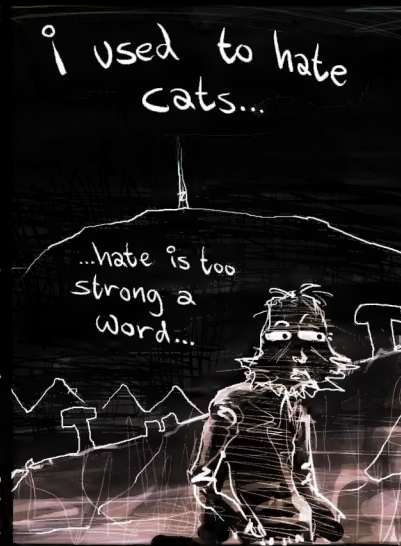 i used to hate
cats...
...hate is too
strong a
word...